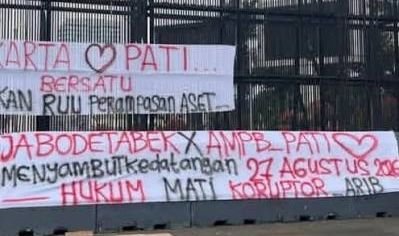 KARTA ♡ PATI...
BERSATU
KAN RUU PERAMPASAN ASET...
JABODETABEK X AMPB_PATI ♡
MENYAMBUT KEDATANGAN 27 AGUSTUS
— HUKUM MATI KORUPTOR